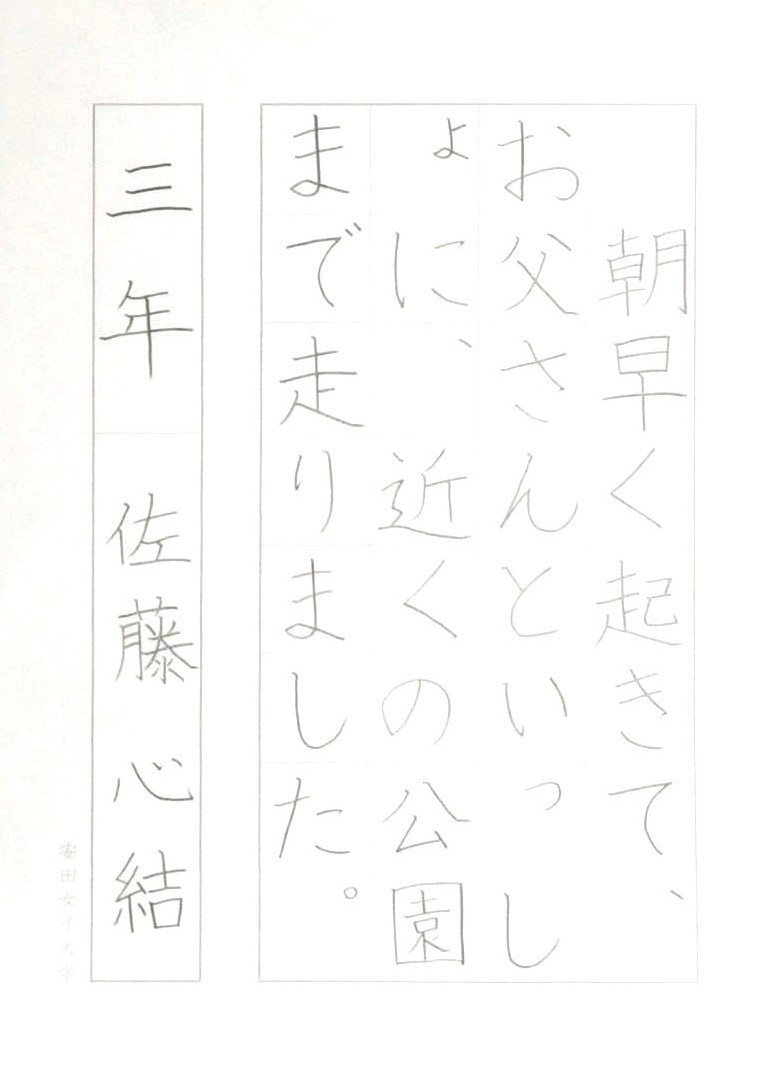 朝早く起きて、
お父さんといっし
ょに、近くの公園
まで走りました。
三年 佐藤心結
安田女子大学